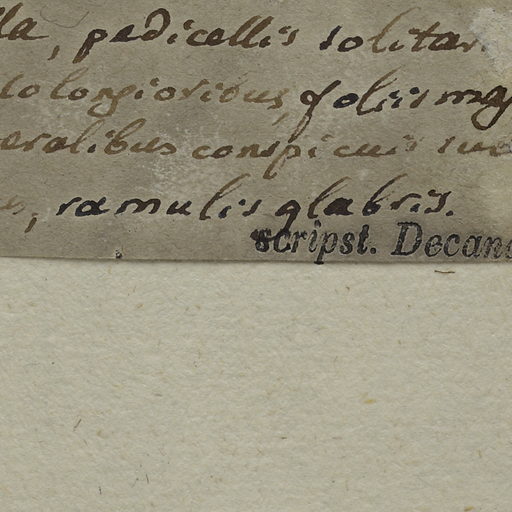 lla, pedicellis solitar
lolongioribus, foliis maj
eralibus conspicuis sub
s, ramulis glabris.
scripst. Decand